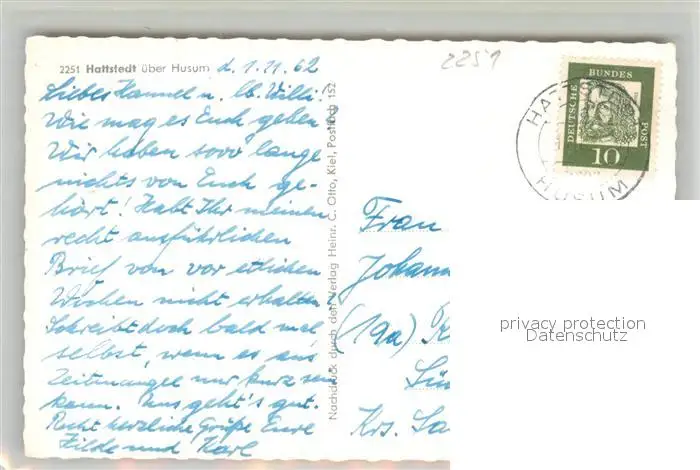 2251 Hattstedt über Husum d. 1.11.62
2251
Liebes Hannel u. lb. Willi!
Wie mag es Euch gehen?
Wir haben sooo lange
nichts von Euch ge-
hört! Habt Ihr meinen
recht ausführlichen
Brief von vor etlichen
Wochen nicht erhalten?
Schreibt doch bald mal
selbst, wenn es aus
Zeitmangel nur kurz sein
kann. Uns geht's gut.
Recht herzliche Grüße Eure
Hilde und Karl
Nachdruck durch den Verlag Heinr. C. Otto, Kiel, Postfach 152
DEUTSCHE
BUNDES
POST
10
HUSUM
Frau
Johann
(19a) K
Krs. Sa
privacy protection
Datenschutz